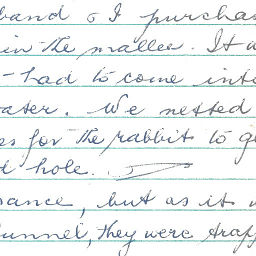 band & I purchas
in the mallee. It w
-had to come into
ater. We netted
es for the rabbit to g
d hole.
ance, but as it w
funnel, they were trapp